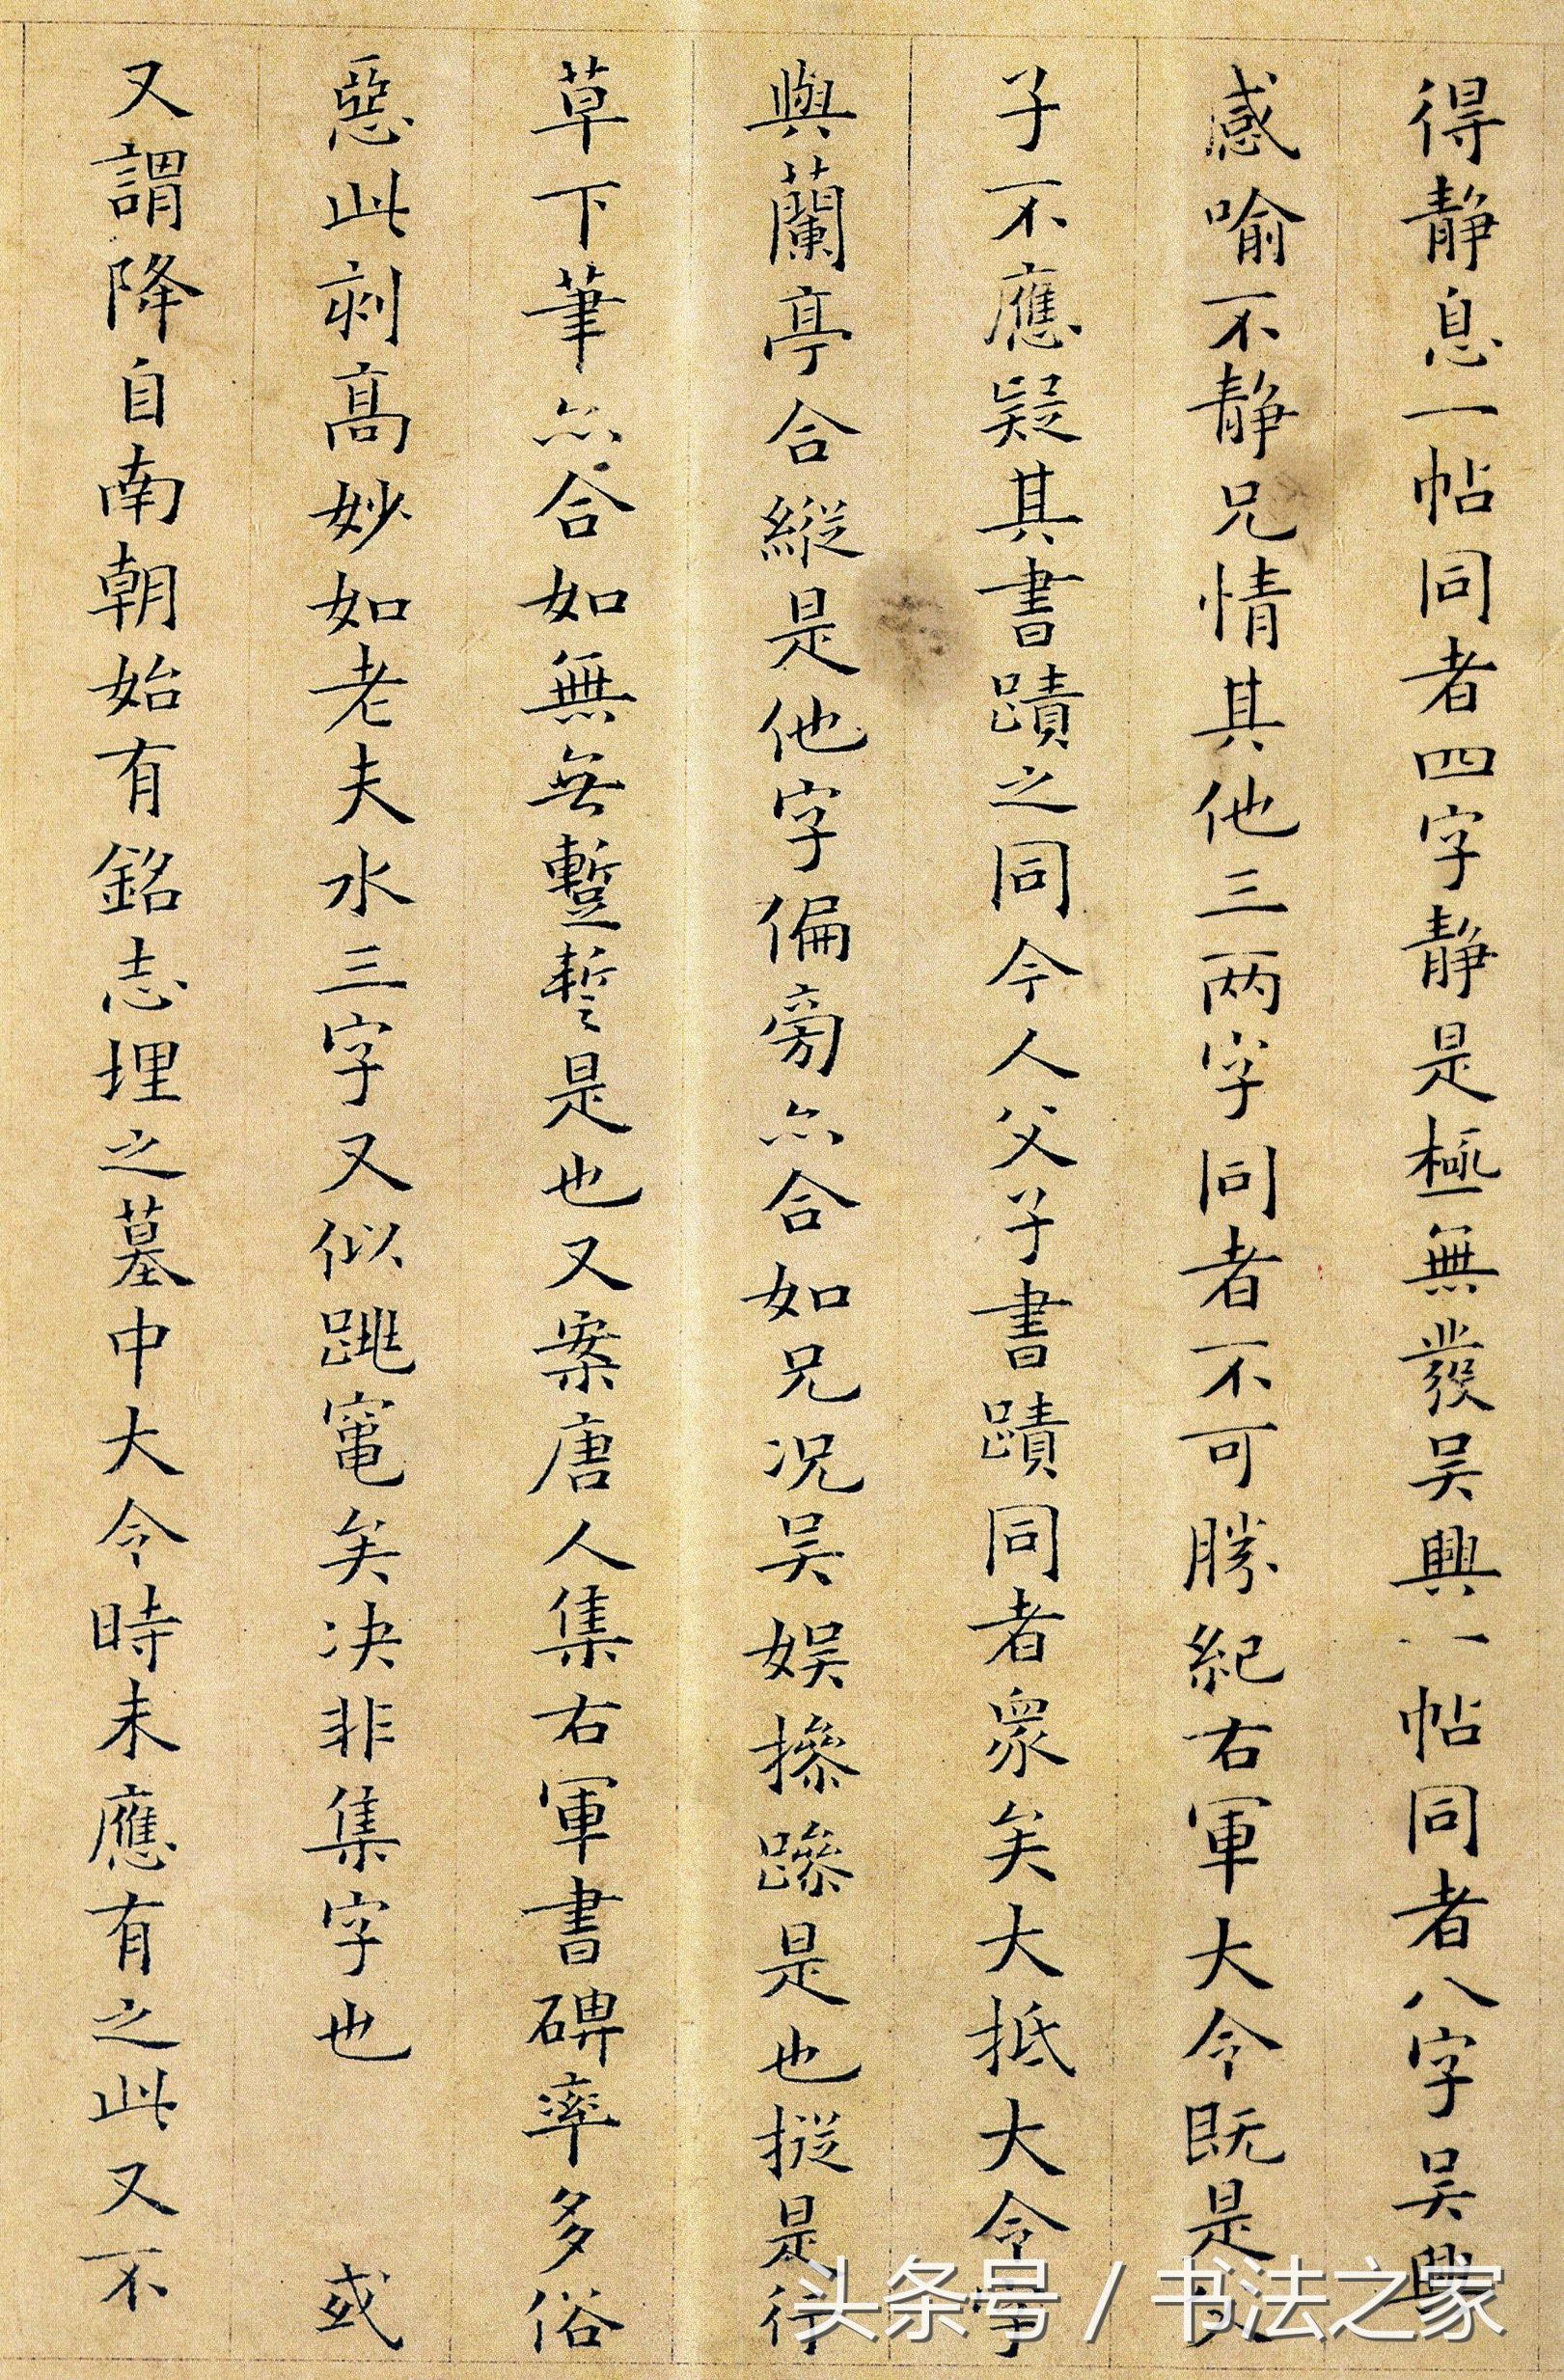 得静息一帖同者四字静是極無發吴興一帖同者八字吴興
感喻不静兄情其他三两字同者不可勝紀右軍大令既是父
子不應疑其書蹟之同今人父子書蹟同者衆矣大抵大令字
與蘭亭合縱是他字偏旁亦合如兄况吴娱摻蹘是也摐是行
草下筆亦合如無无蹔誓是也又案唐人集右軍書碑率多俗
惡此刻高妙如老夫水三字又似跳竃矣决非集字也 或
又謂降自南朝始有銘志埋之墓中大令時未應有之此又不
头条号 / 书法之家